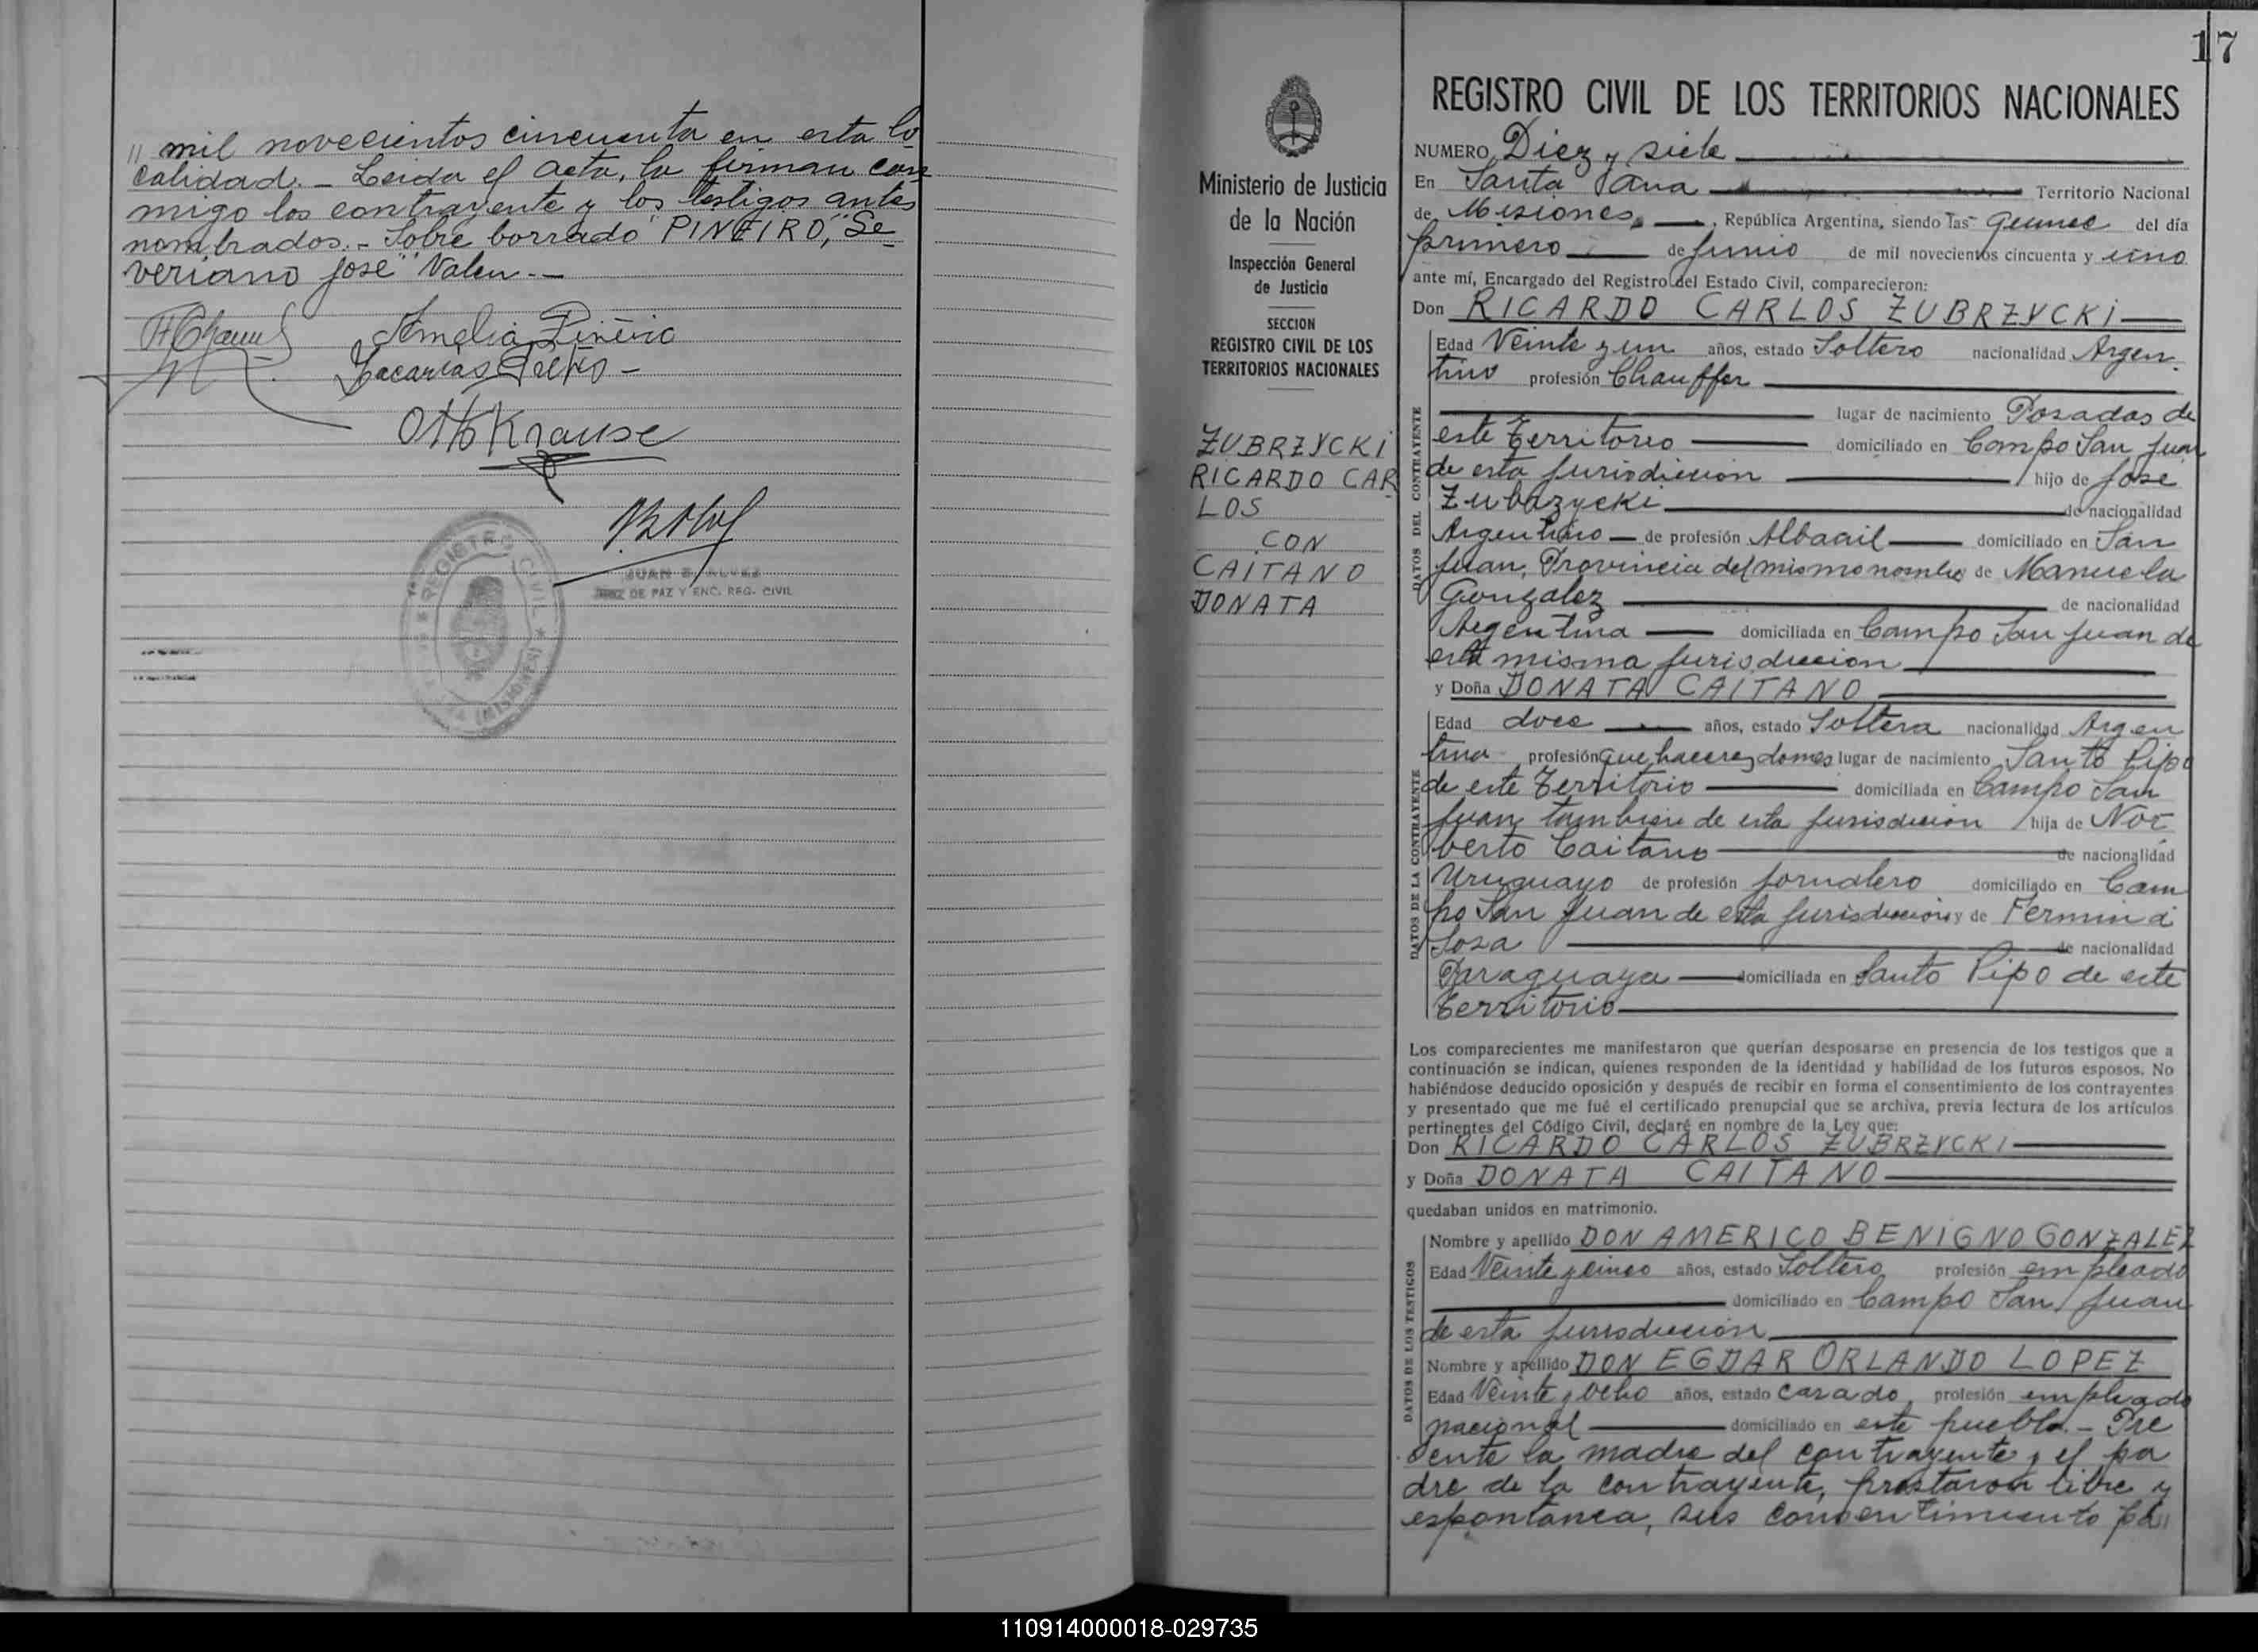 " mil novecientos cincuenta en esta lo
calidad. - Leida el acta, la firman con
migo los contrayente y los testigos antes
nombrados. - Sobre borrado "PINEIRO," "Se
veriano José" Valen. -
Amelia Piñeiro
Zacarías
Otto Krause
REGISTRO CIVIL
(MISIONES)
JUAN B. ALVEZ
JUEZ DE PAZ Y ENC. REG. CIVIL
17
Ministerio de Justicia
de la Nación
Inspección General
de Justicia
SECCION
REGISTRO CIVIL DE LOS
TERRITORIOS NACIONALES
ZUBRZYCKI
RICARDO CAR
LOS
CON
CAITANO
DONATA
REGISTRO CIVIL DE LOS TERRITORIOS NACIONALES
NUMERO Diez y siete
En Santa Ana Territorio Nacional
de Misiones, República Argentina, siendo las quince del día
primero de Junio de mil novecientos cincuenta y uno
ante mí, Encargado del Registro del Estado Civil, comparecieron:
Don RICARDO CARLOS ZUBRZYCKI
DATOS DEL CONTRAYENTE
Edad Veinte y un años, estado Soltero nacionalidad Argen
tino profesión Chauffer
lugar de nacimiento Posadas de
este Territorio domiciliado en Campo San Juan
de esta jurisdicción hijo de José
Zubrzycki de nacionalidad
Argentino de profesión Albañil domiciliado en San
Juan, Provincia del mismo nombre de Manuela
Gonzalez de nacionalidad
Argentina domiciliada en Campo San Juan de
esta misma jurisdiccion
y Doña DONATA CAITANO
DATOS DE LA CONTRAYENTE
Edad doce años, estado Soltera nacionalidad Argen
tina profesión que haceres domes lugar de nacimiento Santo Pipo
de este Territorio domiciliada en Campo San
Juan tambien de esta jurisdicion hija de Nor
berto Caitano de nacionalidad
Uruguayo de profesión jornalero domiciliado en Cam
po San Juan de esta jurisdiccion y de Fermina
Sosa de nacionalidad
Paraguaya domiciliada en Santo Pipo de este
Territorio
Los comparecientes me manifestaron que querían desposarse en presencia de los testigos que a
continuación se indican, quienes responden de la identidad y habilidad de los futuros esposos. No
habiéndose deducido oposición y después de recibir en forma el consentimiento de los contrayentes
y presentado que me fué el certificado prenupcial que se archiva, previa lectura de los artículos
pertinentes del Código Civil, declaré en nombre de la Ley que:
Don RICARDO CARLOS ZUBRZYCKI
y Doña DONATA CAITANO
quedaban unidos en matrimonio.
DATOS DE LOS TESTIGOS
Nombre y apellido DON AMERICO BENIGNO GONZALEZ
Edad Veinte y cinco años, estado Soltero profesión empleado
domiciliado en Campo San Juan
de esta jurisdiccion
Nombre y apellido DON EGDAR ORLANDO LOPEZ
Edad Veinte y ocho años, estado casado profesión empleado
nacional domiciliado en este pueblo. - Pre
sente la madre del contrayente y el pa
dre de la contrayente, prestaron libre y
espontanea, sus consentimiento pa"
110914000018-029735